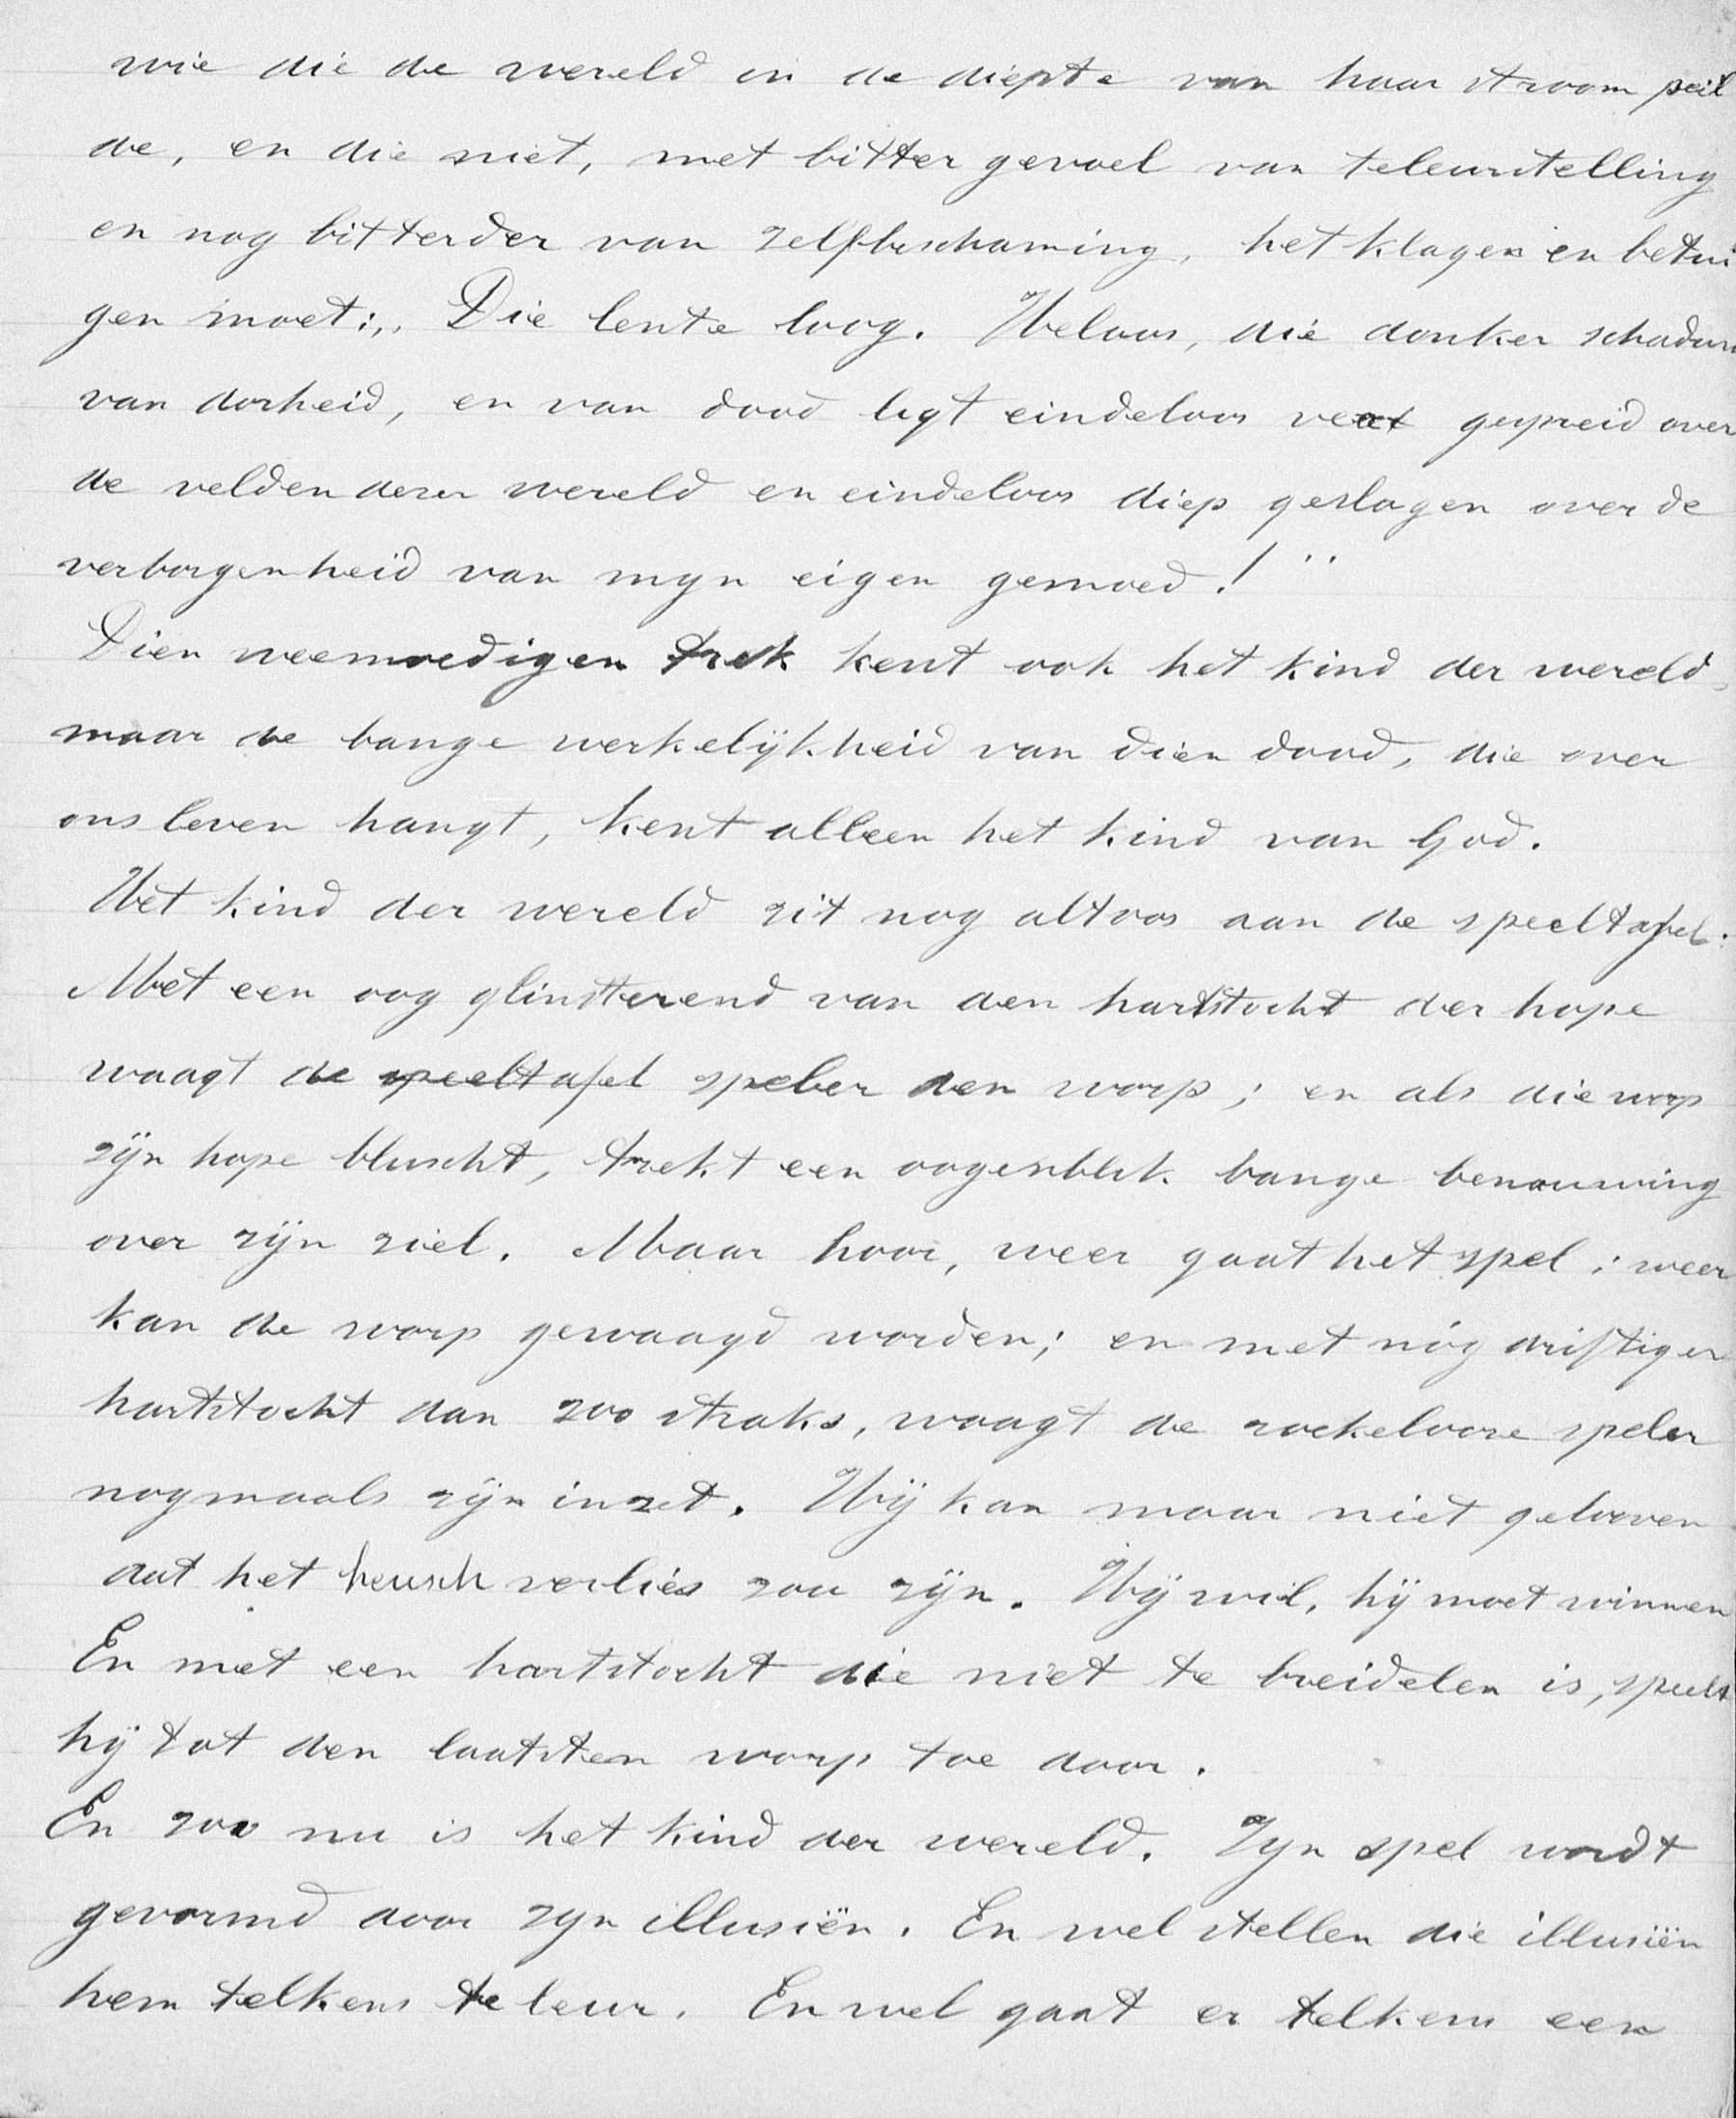 wie die de wereld in de diepte van haar stroom peil
de, en die niet, met bitter gevoel van teleurstelling
en nog bitterder van zelfbeschaming, het klagen en betui
gen moet: „Die lente loog. Helaas, die donker schaduw
van dorheid, en van dood ligt eindeloos gespreid over
de velden dezer wereld en eindeloos diep geslagen over de
verborgenheid van mijn eigen gemoed!"
Dien weemoedigen trek kent ook het kind der wereld,
maar de bange werkelijkheid van dien dood, die over
ons leven hangt, kent alleen het kind van God.
Het kind der wereld zit nog altoos aan de speeltafel.
Met een oog glinsterend van den hartstocht der hope
waagt de speeltafel speler den worp; en als die worp
zijn hope bluscht, trekt een oogenblik bange benauwing
over zijn ziel. Maar hoor, weer gaat het spel; weer
kan de worp gewaagd worden; en met nóg driftiger
hartstocht dan zoo straks, waagt de roekeloose speler
nogmaals zijn inzet. Hij kan maar niet gelooven
dat het heusch verlies zou zijn. Hij wil, hij moet winnen
En met een hartstocht die niet te breidelen is, speelt
hij tot den laatsten worp toe door.
En zoo nu is het kind der wereld. Zijn spel wordt
gevormd door zijn illusiën. En wel stellen die illusiën
hem telkens te leur. En wel gaat er telkens een